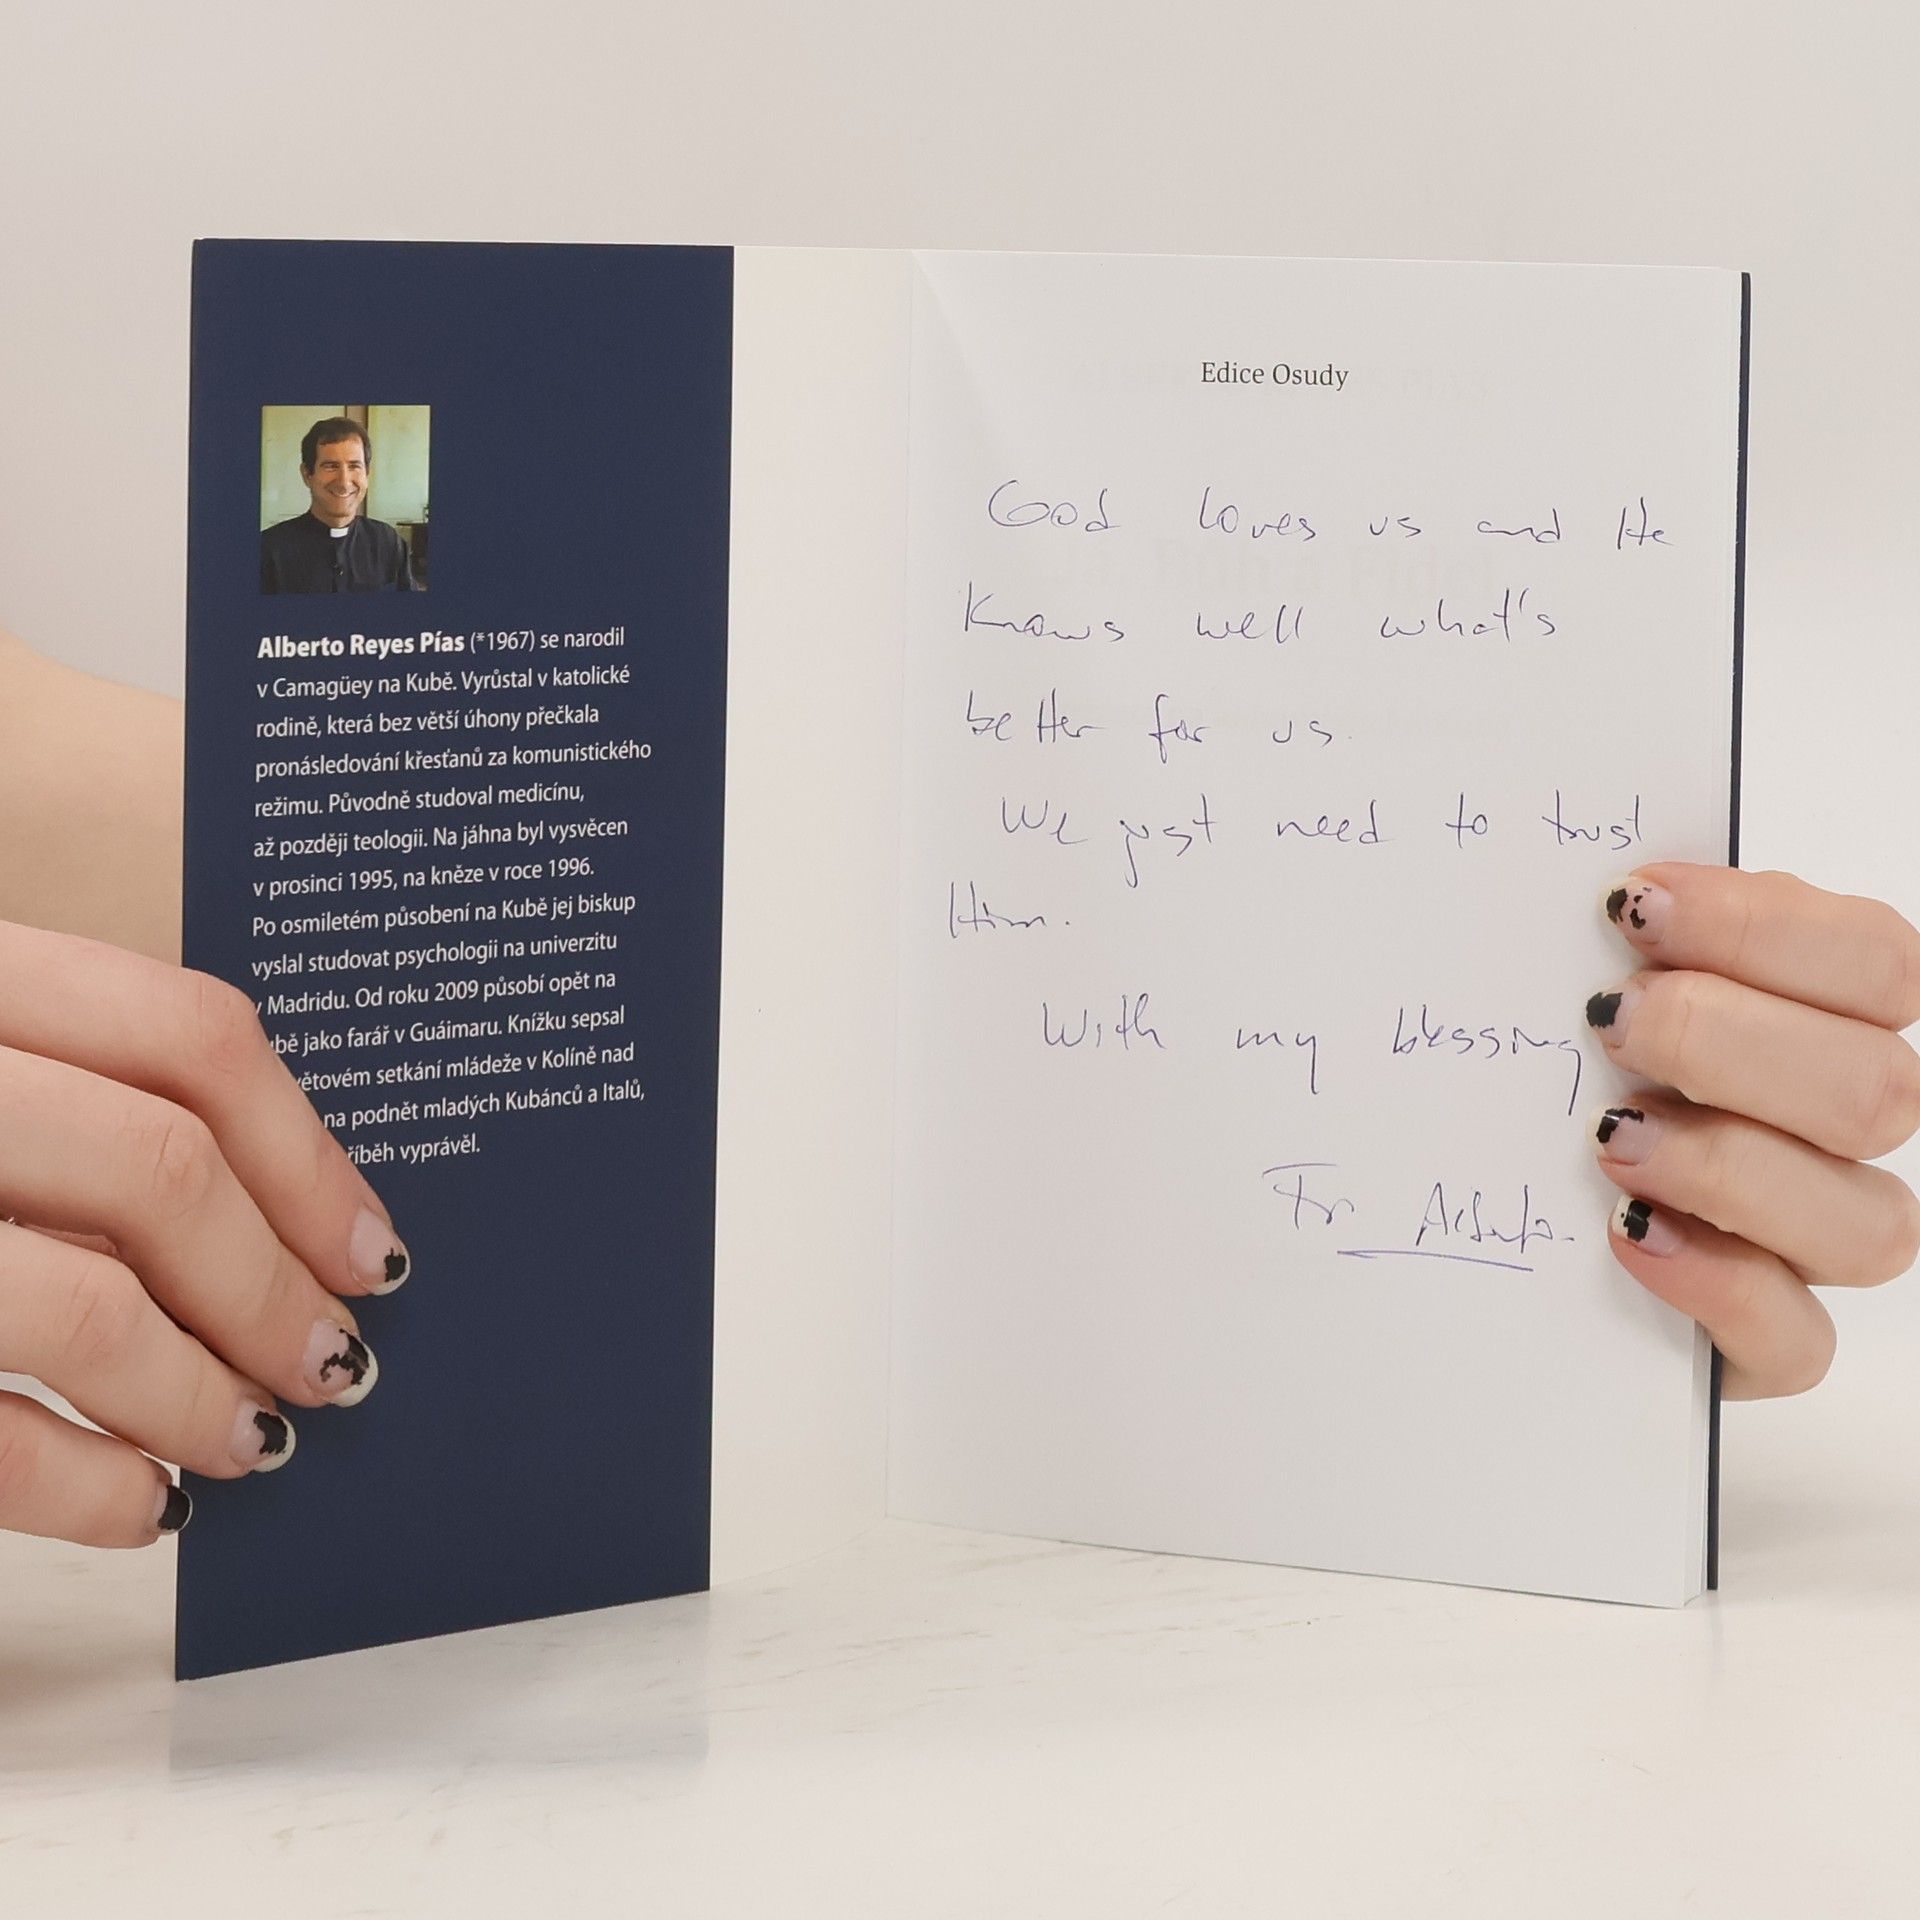 Alberto Reyes Pías (*1967) se narodil
v Camagüey na Kubě. Vyrůstal v katolické
rodině, která bez větší úhony přečkala
pronásledování křesťanů za komunistického
režimu. Původně studoval medicínu,
až později teologii. Na jáhna byl vysvěcen
v prosinci 1995, na kněze v roce 1996.
Po osmiletém působení na Kubě jej biskup
vyslal studovat psychologii na univerzitu
v Madridu. Od roku 2009 působí opět na
jako farář v Guáimaru. Knížku sepsal
setkání mládeže v Kolíně nad
na podnět mladých Kubánců a Italů,
vyprávěl.
Edice Osudy
God loves us and He
Knows well what's
better for us.
We just need to trust
Him.
With my blessing
Fr Alberto.